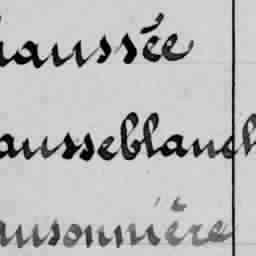 haussée
ausseblanch
ansonnière